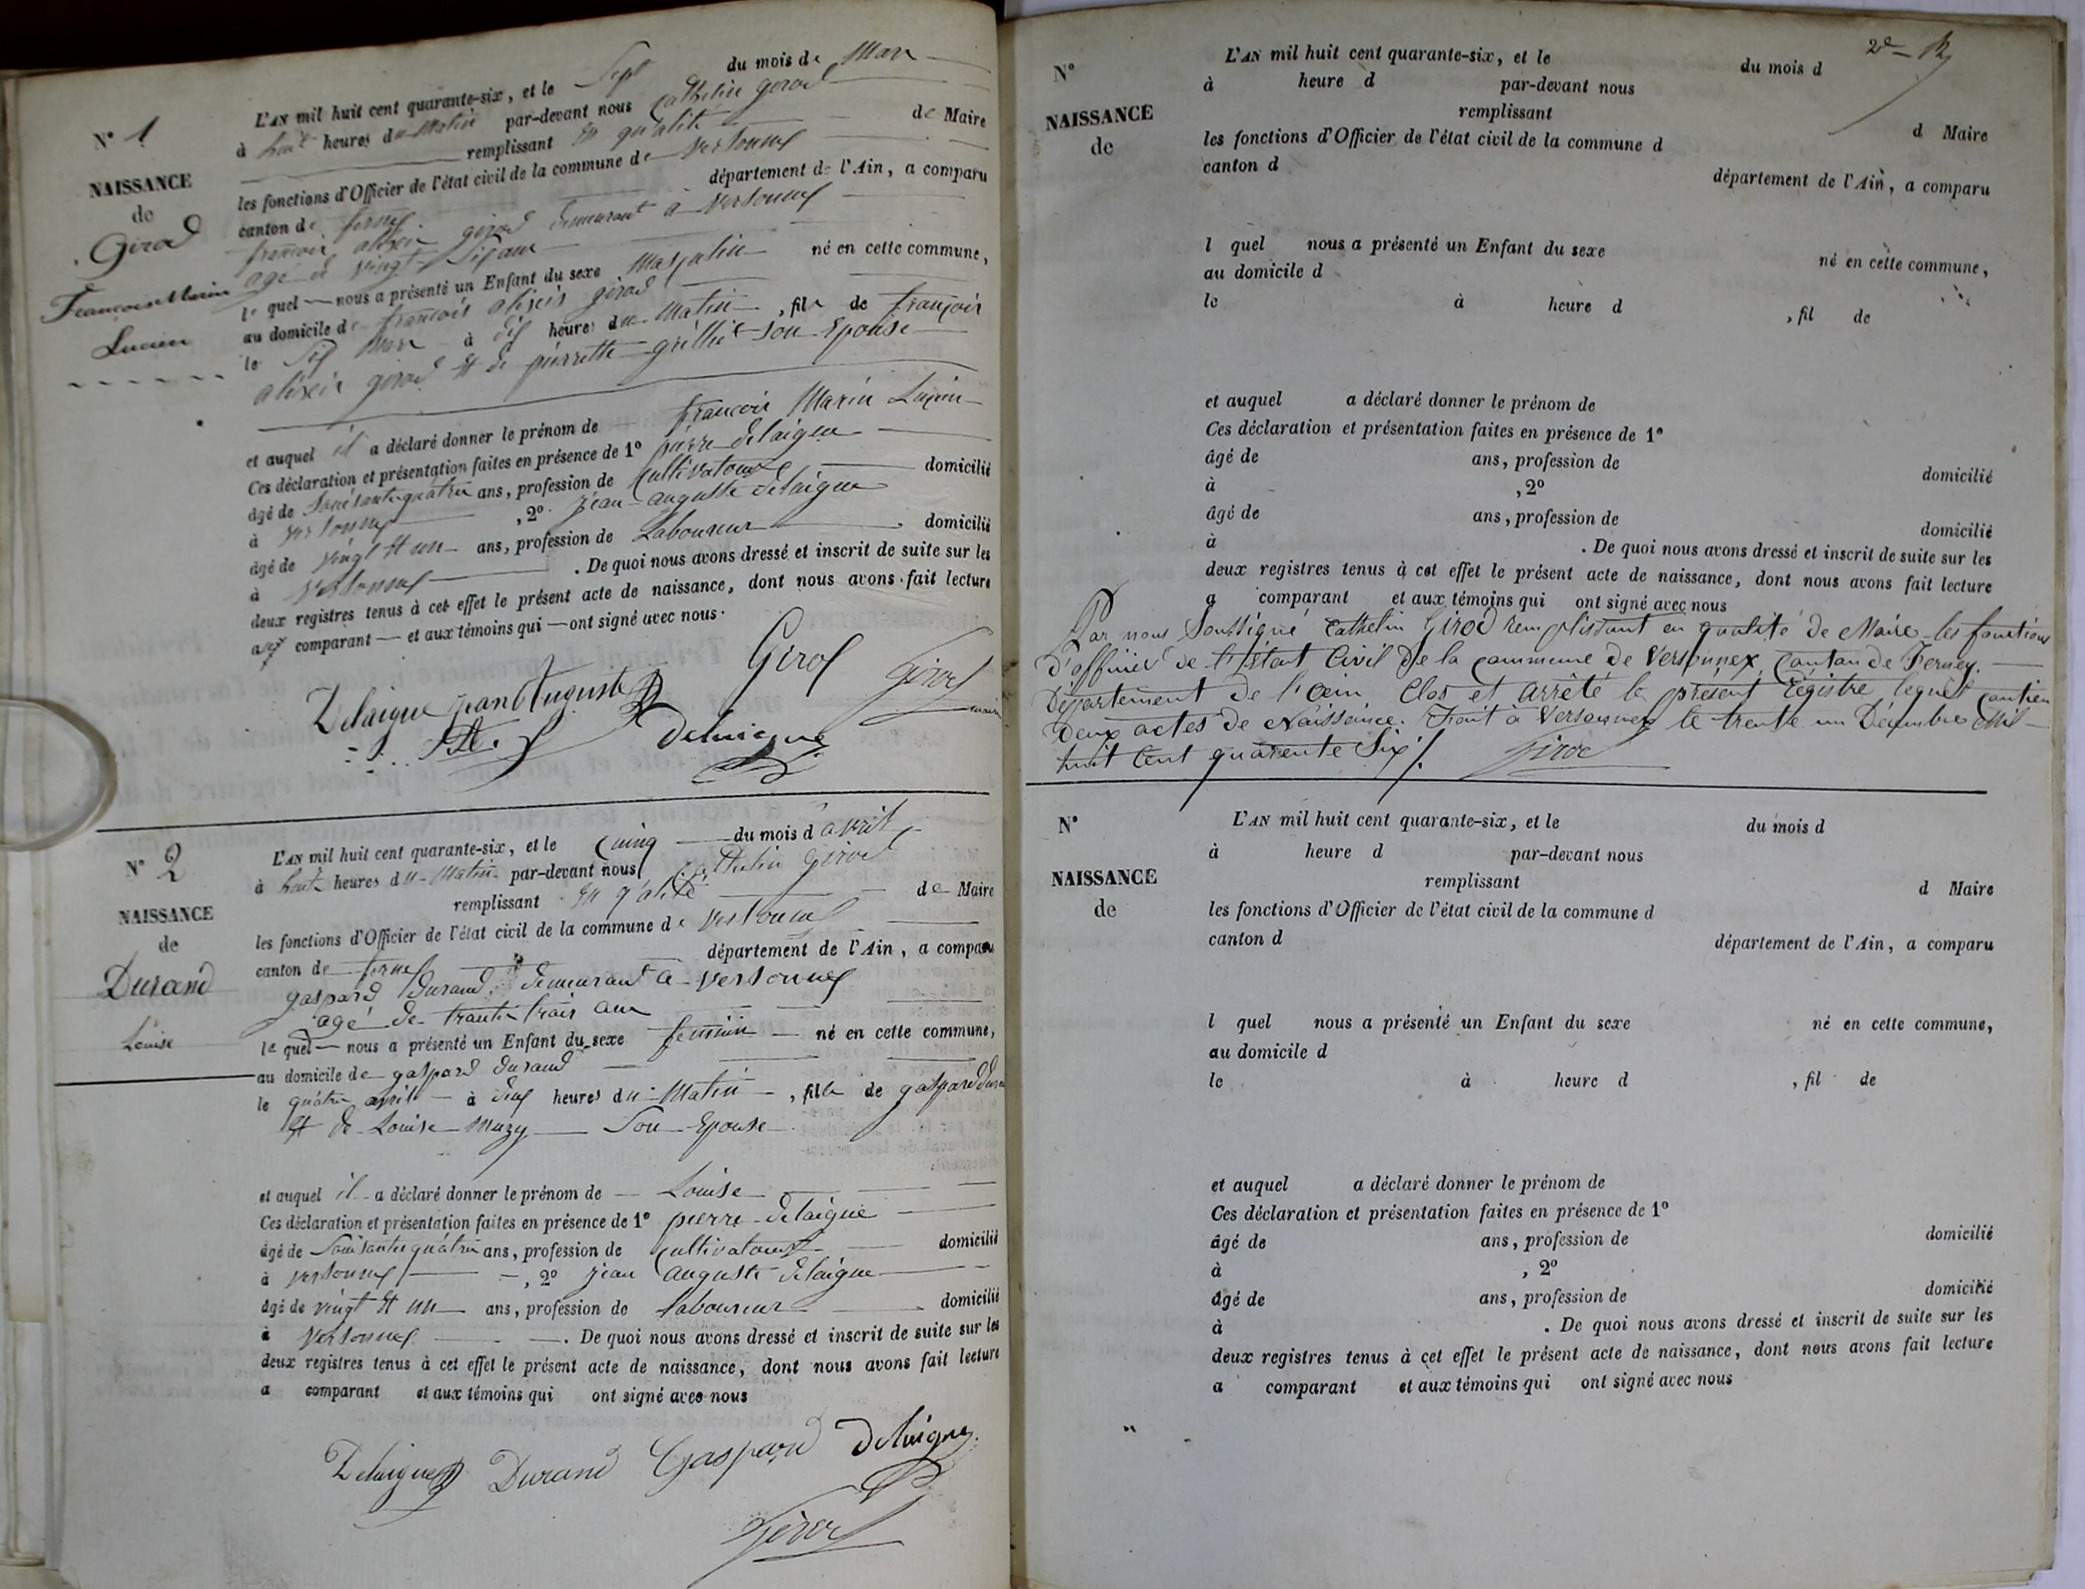 N° 1
NAISSANCE
de
Girod
Francois Marin
Lucien
L'AN mil huit cent quarante-six, et le Sept du mois de Mars
à huit heures du Matin par-devant nous Cathelin girod
remplissant en qualité de Maire
les fonctions d'Officier de l'état civil de la commune de Versonnex
canton de ferney département de l'Ain, a comparu
françois alixis girod demeurant à Versonnex
agé de vingt
le quel nous a présenté un Enfant du sexe Masqulin né en cette commune,
au domicile de françois alixis girod
le Mars à heures du Matin, fils de françois
alixis girod et de pierrette grillet Son Epouse
et auquel il a déclaré donner le prénom de françois Marin Luçien
Ces déclaration et présentation faites en présence de 1° pierre delaigue
âgé de Soixante quatre ans, profession de Cultivateur domicilié
à Versonnex, 2° jean auguste delaigue
âgé de vingt et un ans, profession de Laboureur domicilié
à Versonnex. De quoi nous avons dressé et inscrit de suite sur les
deux registres tenus à cet effet le présent acte de naissance, dont nous avons fait lecture
aux comparant et aux témoins qui ont signé avec nous.
Girod
Delaigue jean Auguste
Girod
maire
Delaigue
N° 2
NAISSANCE
de
Durand
Louise
L'AN mil huit cent quarante-six, et le Cinq du mois d avril
à huit heures du Matin par-devant nous Cathelin Girod
remplissant en qalité de Maire
les fonctions d'Officier de l'état civil de la commune de Versonnex
canton de ferney département de l'Ain, a comparu
gaspard durand demeurant a Versonnex
agé de trante trois ans
le quel nous a présenté un Enfant du sexe feminin né en cette commune,
au domicile de gaspard durand
le quatre avril à heures du Matin, fille de gaspard durand
et de Louise Muzy Son Epouse
et auquel il a déclaré donner le prénom de Louise
Ces déclaration et présentation faites en présence de 1° pierre delaigue
âgé de Soixante quatre ans, profession de Cultivateur domicilié
à Versonnex, 2° jean auguste delaigue
âgé de vingt et un ans, profession de Laboureur domicilié
à Versonnex. De quoi nous avons dressé et inscrit de suite sur les
deux registres tenus à cet effet le présent acte de naissance, dont nous avons fait lecture
a comparant et aux témoins qui ont signé avec nous
Delaigue Durand Gaspard Delaigue
Girod
2e
N°
NAISSANCE
de
L'AN mil huit cent quarante-six, et le du mois d
à heure d par-devant nous
remplissant d Maire
les fonctions d'Officier de l'état civil de la commune d
canton d département de l'Ain, a comparu
l quel nous a présenté un Enfant du sexe né en cette commune,
au domicile d
le à heure d , fil de
et auquel a déclaré donner le prénom de
Ces déclaration et présentation faites en présence de 1°
âgé de ans, profession de domicilié
à , 2°
âgé de ans, profession de domicilié
à . De quoi nous avons dressé et inscrit de suite sur les
deux registres tenus à cet effet le présent acte de naissance, dont nous avons fait lecture
a comparant et aux témoins qui ont signé avec nous
Par nous Soussigné Cathelin Girod remplissant en qualité de Maire les fonctions
d'officier de l'Etat Civil de la commune de Versonnex, Canton de Ferney,
Département de l'ain Clos et arrêté le présent régistre lequel contien
deux actes de Naissance. Fait à Versonnex le trente un Décembre Mil
huit Cent quarente Six /. Girod
N°
NAISSANCE
de
L'AN mil huit cent quarante-six, et le du mois d
à heure d par-devant nous
remplissant d Maire
les fonctions d'Officier de l'état civil de la commune d
canton d département de l'Ain, a comparu
l quel nous a présenté un Enfant du sexe né en cette commune,
au domicile d
le à heure d , fil de
et auquel a déclaré donner le prénom de
Ces déclaration et présentation faites en présence de 1°
âgé de ans, profession de domicilié
à , 2°
âgé de ans, profession de domicilié
à . De quoi nous avons dressé et inscrit de suite sur les
deux registres tenus à cet effet le présent acte de naissance, dont nous avons fait lecture
a comparant et aux témoins qui ont signé avec nous